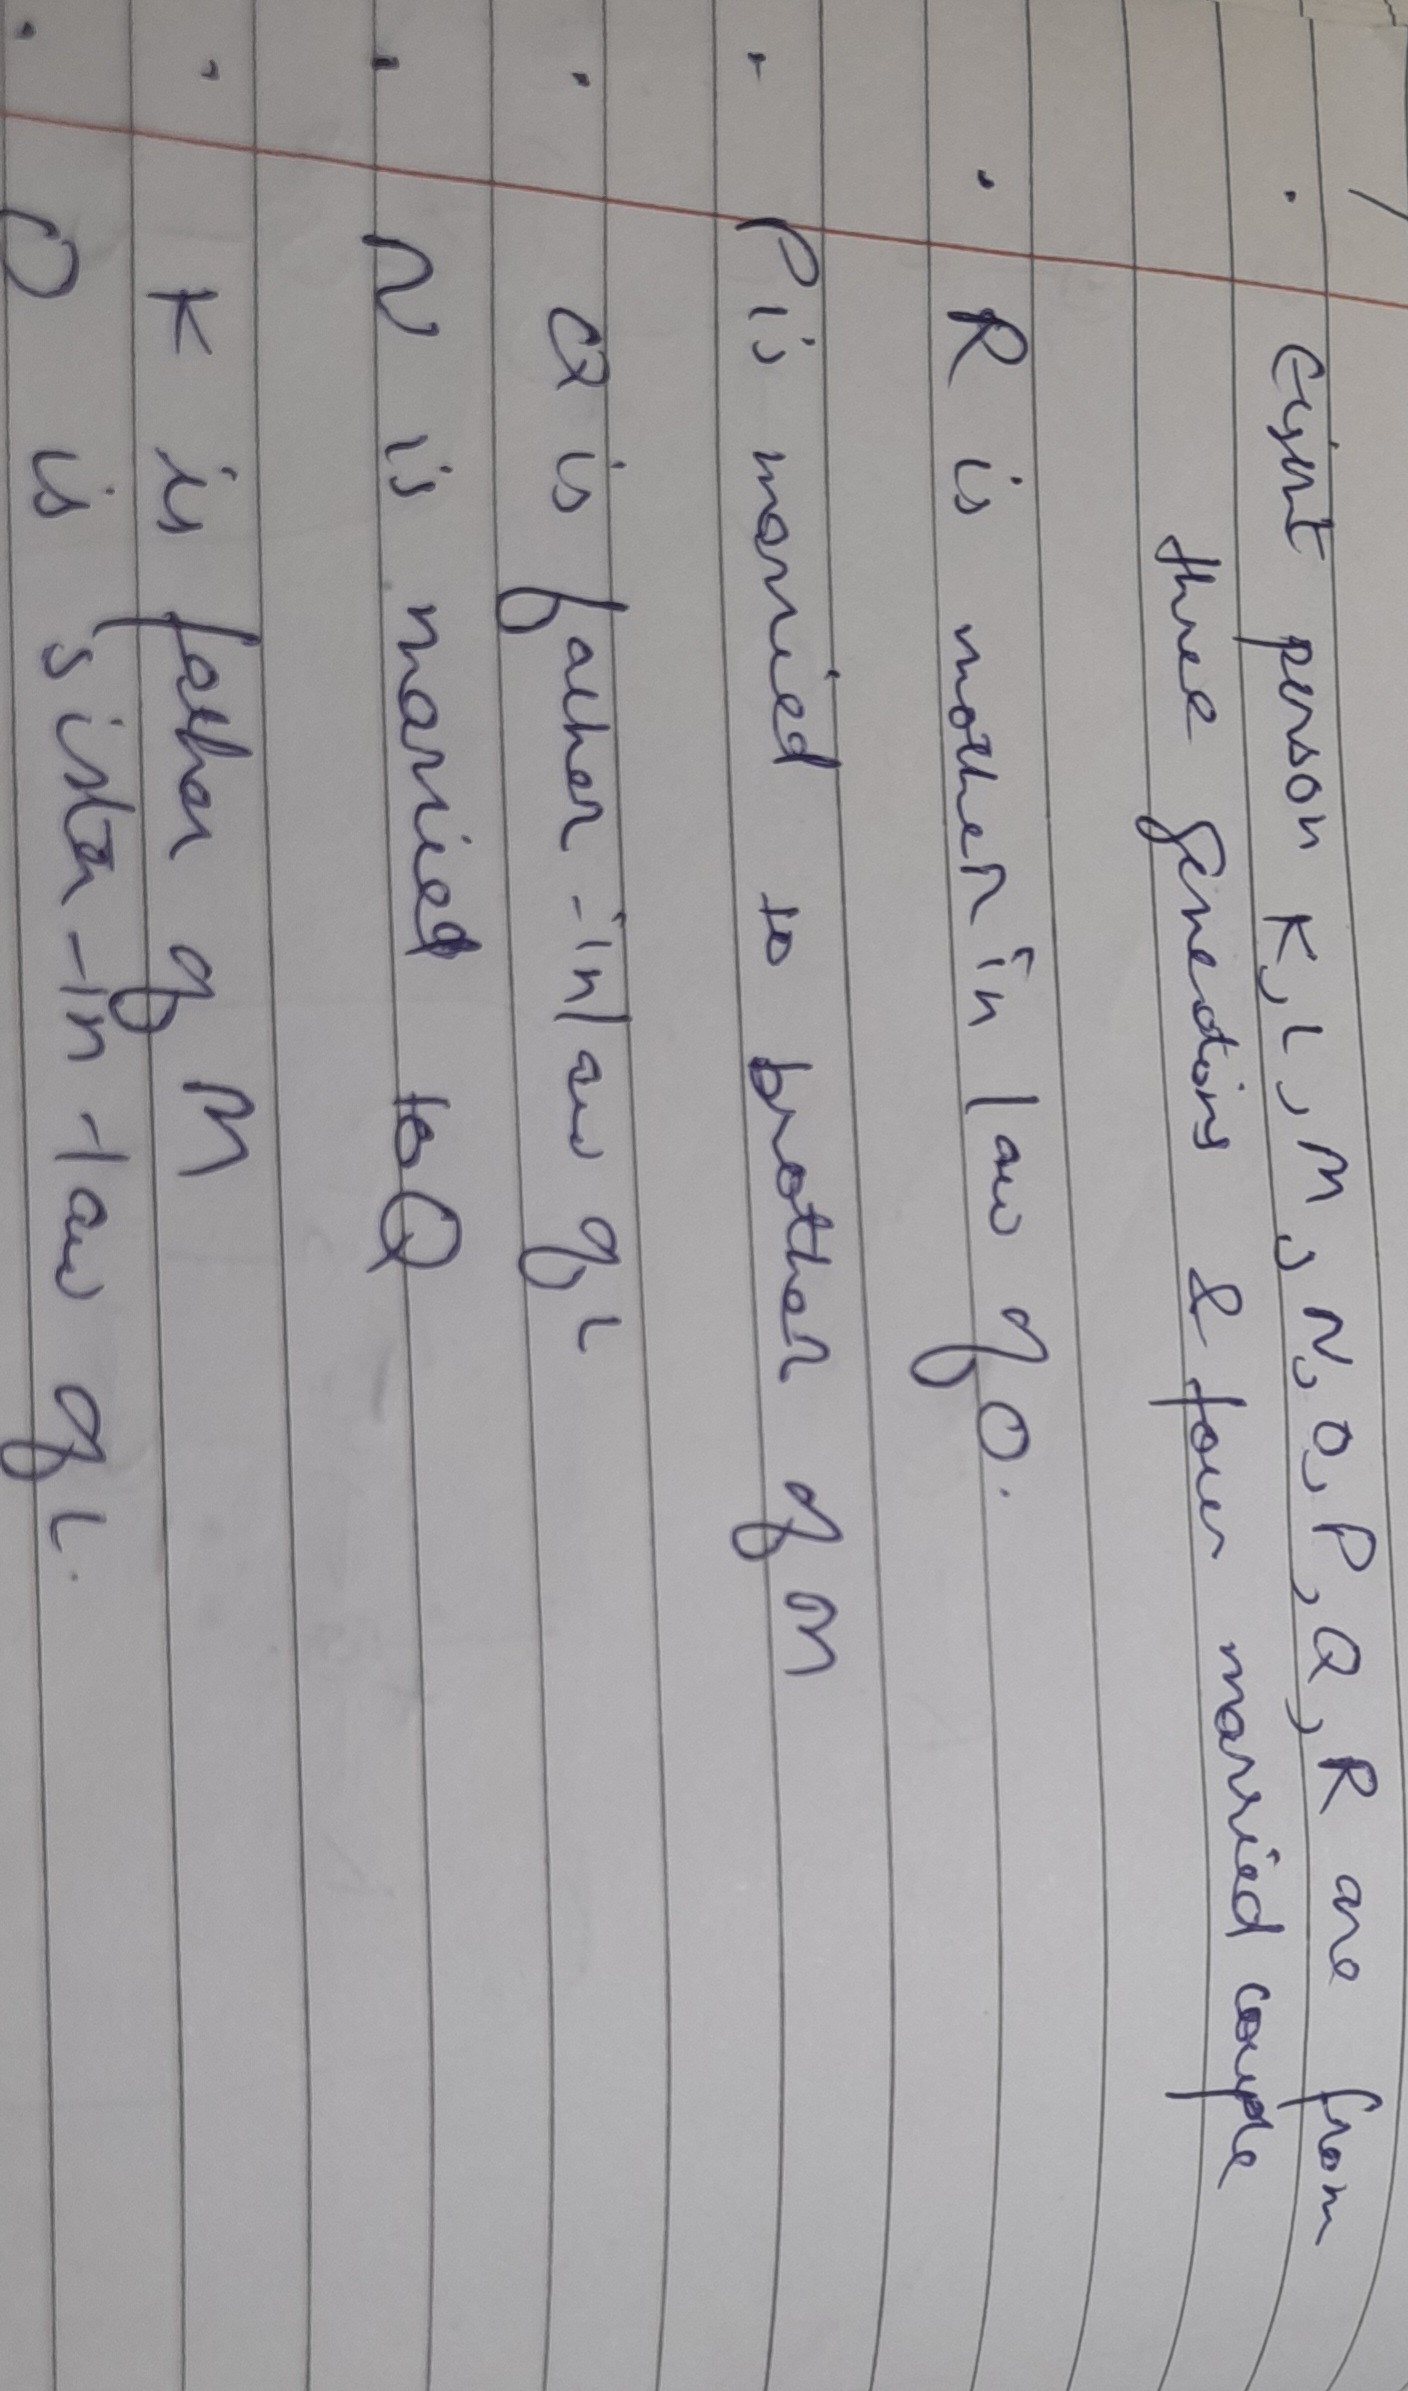 · Eight person K, L, M, N, O, P, Q, R are from
three generations & four married couple
· R is mother in law of O.
- P is married to brother of M
· Q is father-in law of L
· N is married to Q
· K is father of M
· O is sister-in-law of L.